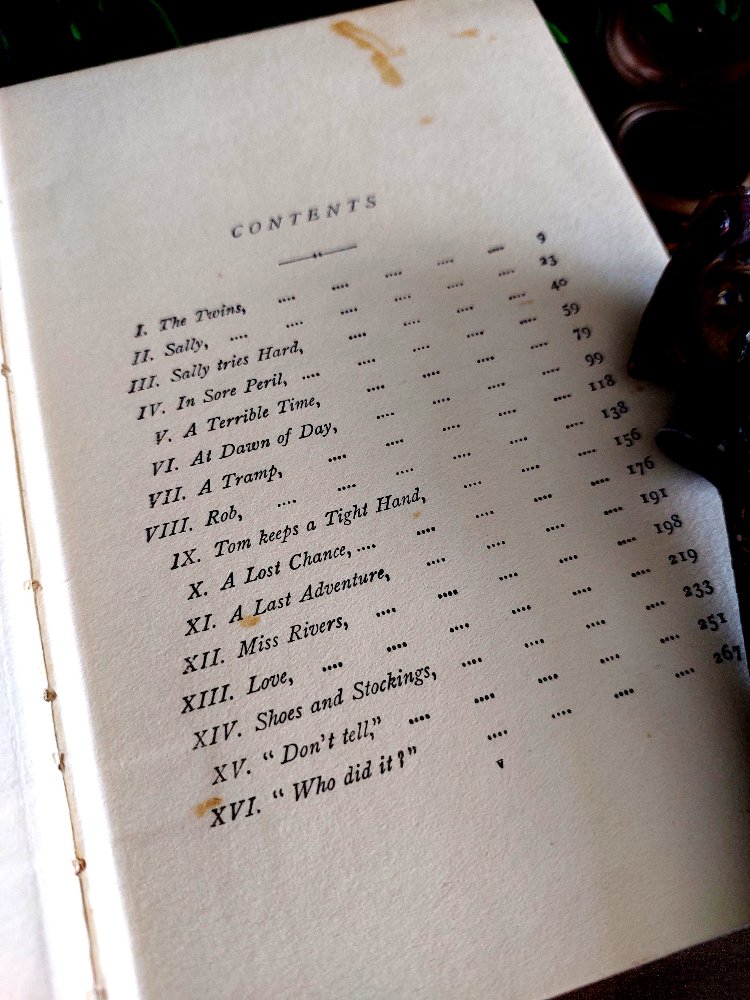 CONTENTS
I. The Twins, .... .... .... .... .... 9
II. Sally, .... .... .... .... .... 23
III. Sally tries Hard, .... .... .... .... 40
IV. In Sore Peril, .... .... .... .... .... 59
V. A Terrible Time, .... .... .... .... 79
VI. At Dawn of Day, .... .... .... .... 99
VII. A Tramp, .... .... .... .... .... 118
VIII. Rob, .... .... .... .... .... .... 138
IX. Tom keeps a Tight Hand, .... .... .... 156
X. A Lost Chance, .... .... .... .... .... 176
XI. A Last Adventure, .... .... .... .... 191
XII. Miss Rivers, .... .... .... .... .... 198
XIII. Love, .... .... .... .... .... .... 219
XIV. Shoes and Stockings, .... .... .... .... 233
XV. "Don't tell," .... .... .... .... .... 251
XVI. "Who did it?" .... .... .... .... 267
v